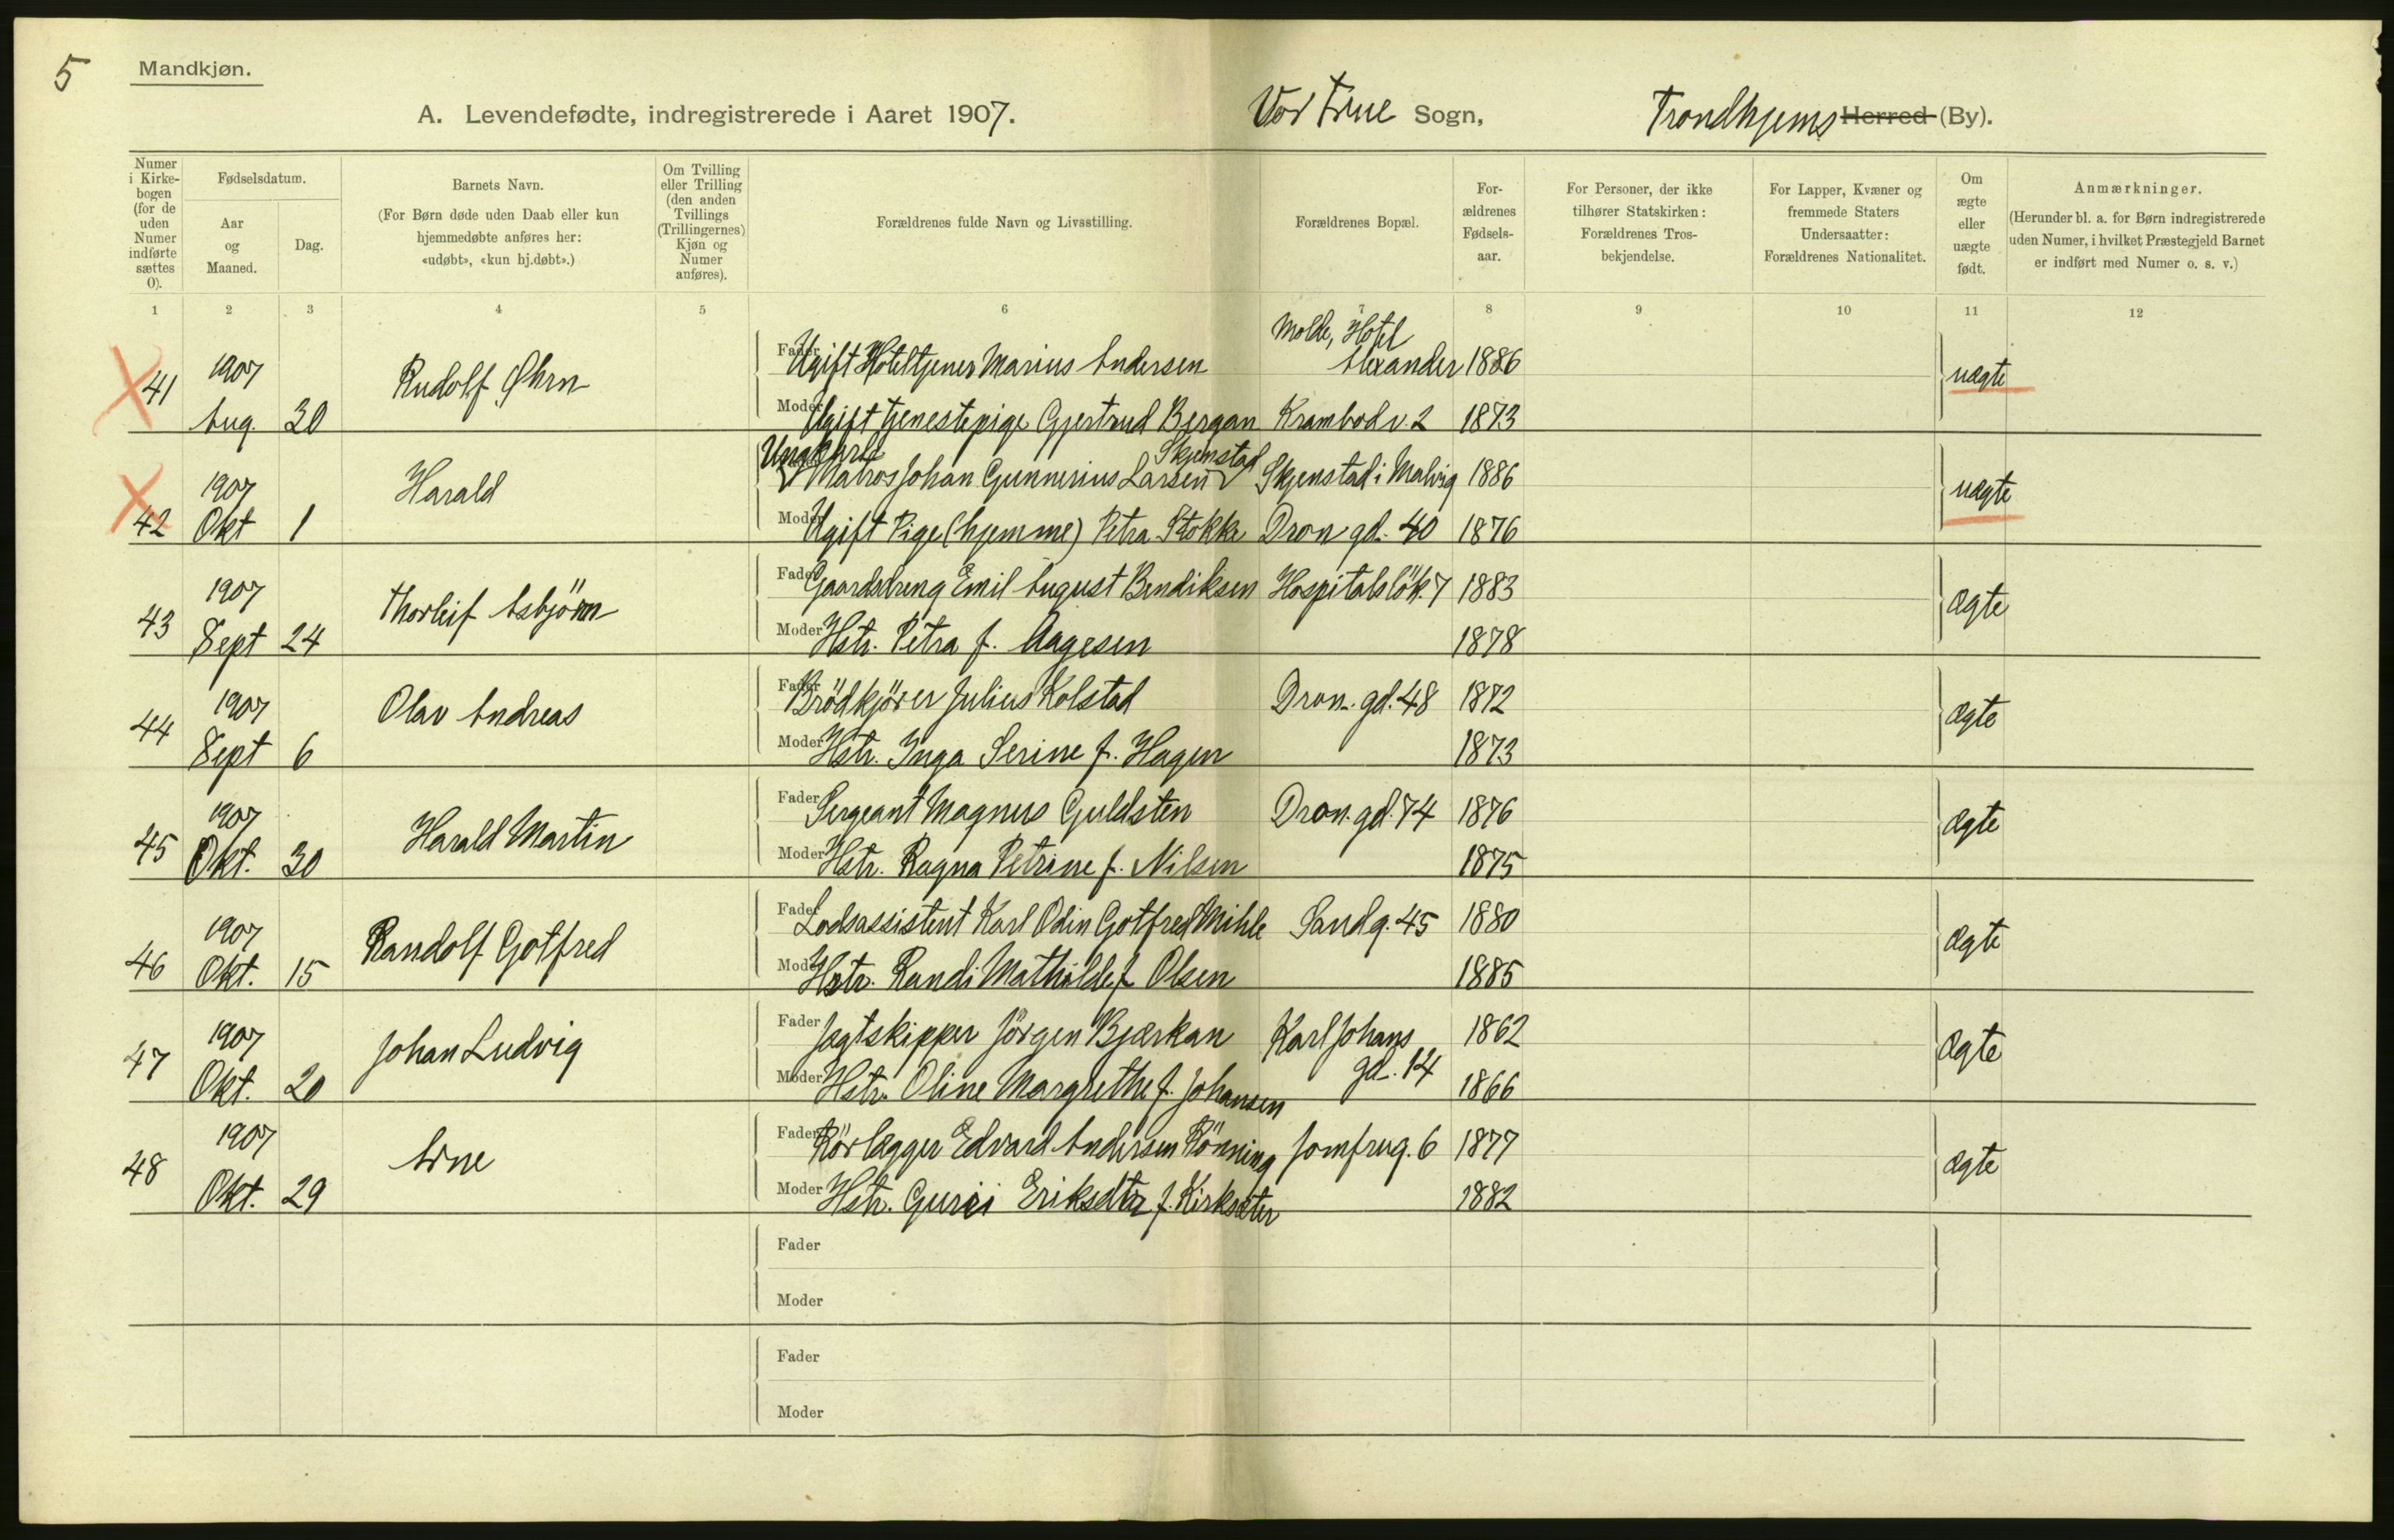 5
Mandkjøn.
A. Levendefødte, indregistrerede i Aaret 1907.
Vor Frue Sogn,
Trondhjems Herred (By).
Numer i Kirke-bogen (for de uden Numer indførte sættes 0).
Fødselsdatum.
Aar og Maaned.
Dag.
Barnets Navn.
(For Børn døde uden Daab eller kun hjemmedøbte anføres her: «udøbt», «kun hj.døbt».)
Om Tvilling eller Trilling (den anden Tvillings (Trillingernes) Kjøn og Numer anføres).
Forældrenes fulde Navn og Livsstilling.
Forældrenes Bopæl.
For-ældrenes Fødsels-aar.
For Personer, der ikke tilhører Statskirken: Forældrenes Tros-bekjendelse.
For Lapper, Kvæner og fremmede Staters Undersaatter: Forældrenes Nationalitet.
Om ægte eller uægte født.
Anmærkninger.
(Herunder bl. a. for Børn indregistrerede uden Numer, i hvilket Præstegjeld Barnet er indført med Numer o. s. v.)
1 2 3 4 5 6 7 8 9 10 11 12
41 1907 Aug. 30 Rudolf Øhrn
Fader Ugift Hoteltjener Marius Andersen Molde, Hotel Alexander 1886 uægte
Moder Ugift tjenestepige Gjertrud Bergan Krambodv. 2 1873
42 1907 Okt 1 Harald
Ungkarl Matros Johan Gunnerius Larsen Skjenstad Skjenstad i Malvig 1886 uægte
Moder Ugift Pige (hjemme) Petra Stokke Dron gd. 40 1876
43 1907 Sept 24 Thorleif Asbjörn
Fader Gaardsdreng Emil August Bendiksen Hospitalslök. 7 1883 ægte
Moder Hstr. Petra f. Aagesen 1878
44 1907 Sept 6 Olav Andreas
Fader Brödkjörer Julius Kolstad Dron. gd. 48 1872 ægte
Moder Hstr. Inga Serine f. Hagen 1873
45 1907 Okt. 30 Harald Martin
Fader Sergeant Magnus Guldsten Dron. gd. 74 1876 ægte
Moder Hstr. Ragna Petrine f. Nilsen 1875
46 1907 Okt. 15 Randolf Gotfred
Fader Lodsassistent Karl Odin Gotfred Mihle Sandg. 45 1880 ægte
Moder Hstr. Randi Mathilde f. Olsen 1885
47 1907 Okt. 20 Johan Ludvig
Fader Jagtskipper Jörgen Bjærkan Karl Johans gd. 14 1862 ægte
Moder Hstr. Oline Margrethe f. Johansen 1866
48 1907 Okt. 29 Arne
Fader Rörlægger Edvard Andersen Rönning Jomfrug. 6 1877 ægte
Moder Hstr. Guri Eriksdtr f. Kirksæter 1882
Fader
Moder
Fader
Moder